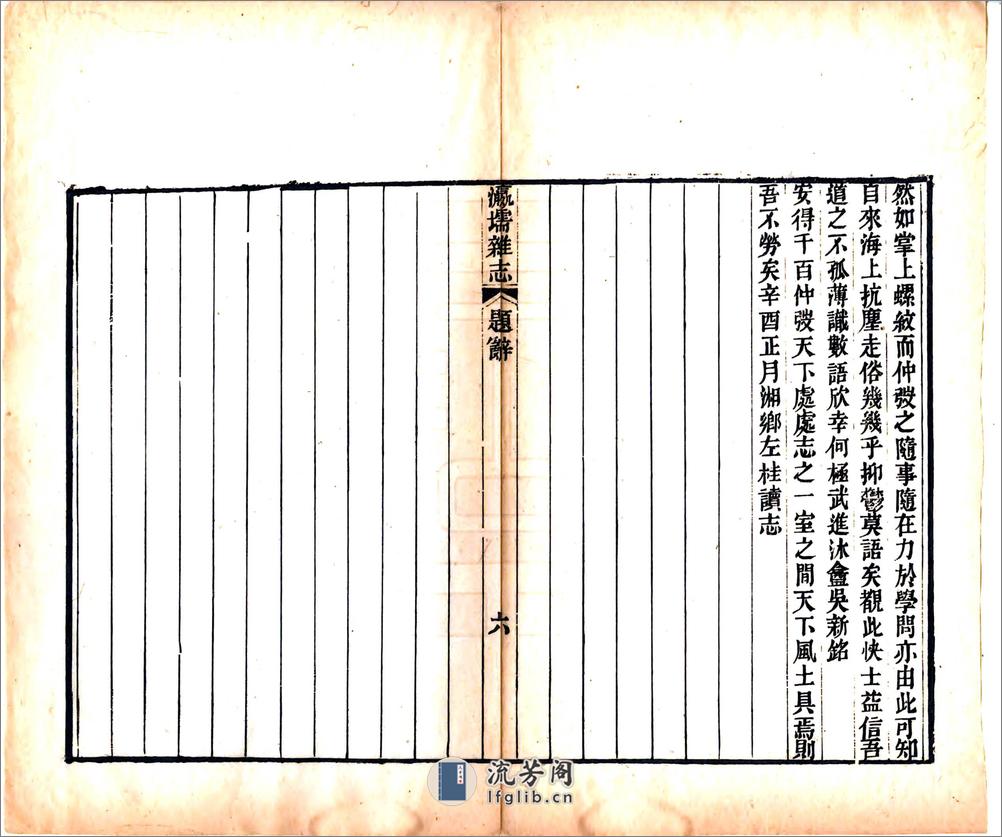 然如掌上螺紋而仲弢之隨事隨在力於學問亦由此可知
自來海上抗塵走俗幾幾乎抑鬱莫語矣覩此快士益信吾
道之不孤薄識數語欣幸何極武進沐盦吳新銘
安得千百仲弢天下處處志之一室之間天下風土具焉則
吾不勞矣辛酉正月湘鄉左桂讀志
瀛壖雜志
題辭
六
流芳阁
lfglib.cn